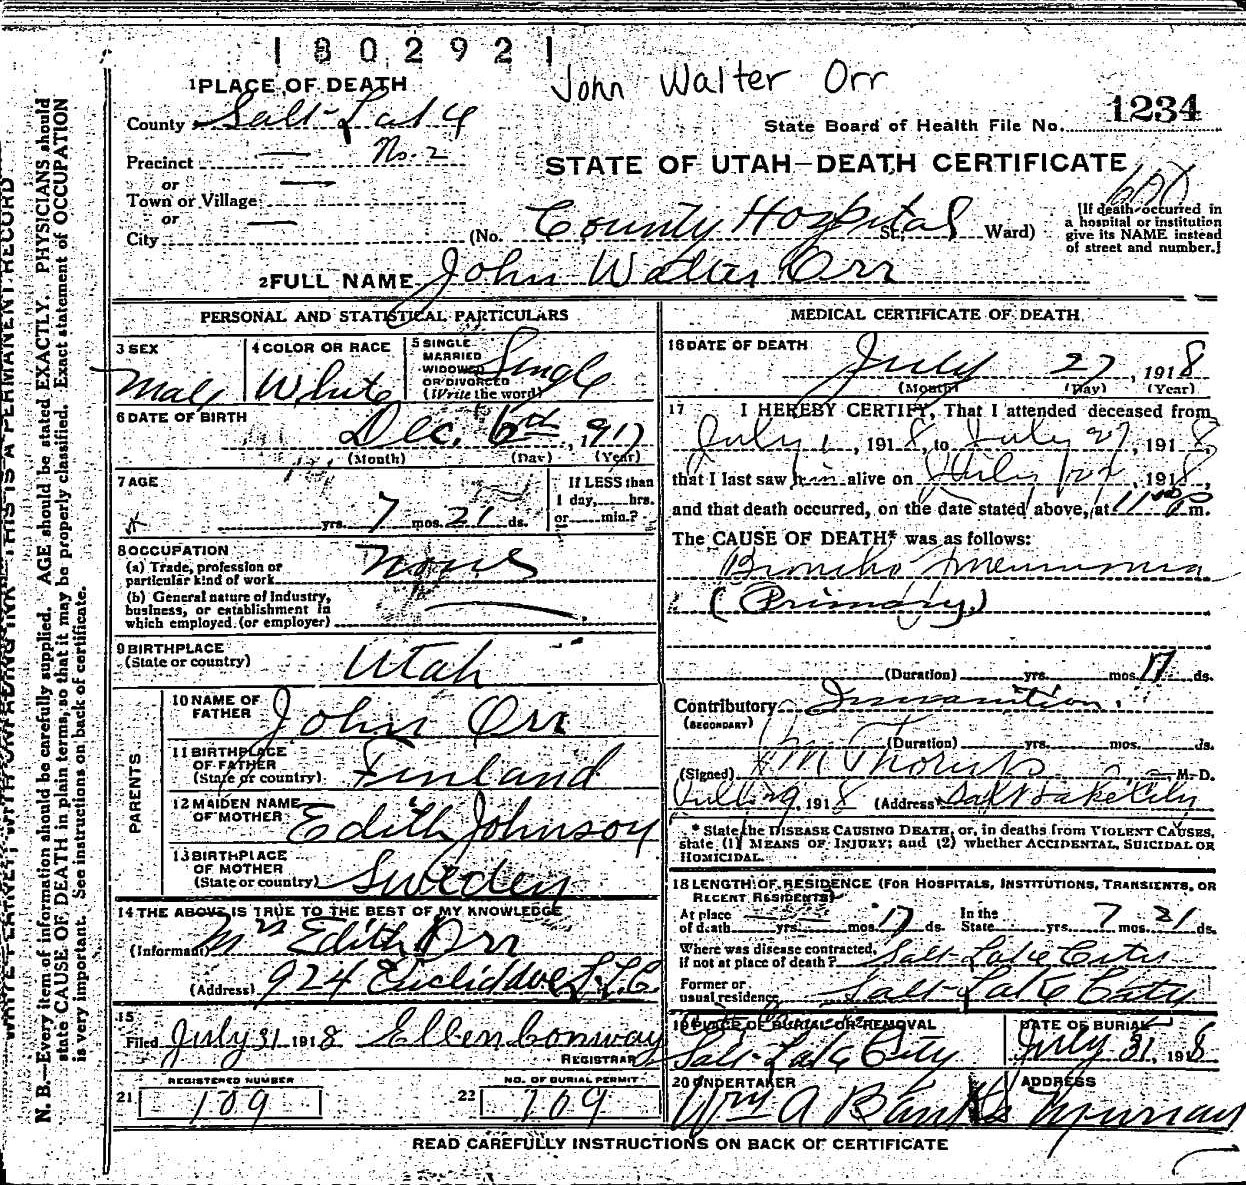 1802921
John Walter Orr
1 PLACE OF DEATH
1234
County Salt Lake
State Board of Health File No.
Precinct No. 2
STATE OF UTAH—DEATH CERTIFICATE
or
Town or Village
or
City (No. County Hospital St. Ward)
[If death occurred in
a hospital or institution
give its NAME instead
of street and number.]
2 FULL NAME John Walter Orr
PERSONAL AND STATISTICAL PARTICULARS
3 SEX Male
4 COLOR OR RACE White
5 SINGLE
MARRIED
WIDOWED
OR DIVORCED
(Write the word) Single
6 DATE OF BIRTH
Dec. 6th, 1917
(Month) (Day) (Year)
7 AGE
yrs. 7 mos. 21 ds.
If LESS than
1 day, hrs.
or min.?
8 OCCUPATION
(a) Trade, profession or
particular kind of work None
(b) General nature of Industry,
business, or establishment in
which employed (or employer)
9 BIRTHPLACE
(State or country) Utah
PARENTS
10 NAME OF
FATHER John Orr
11 BIRTHPLACE
OF FATHER
(State or country) Finland
12 MAIDEN NAME
OF MOTHER Edith Johnson
13 BIRTHPLACE
OF MOTHER
(State or country) Sweden
14 THE ABOVE IS TRUE TO THE BEST OF MY KNOWLEDGE
(Informant) Mrs Edith Orr
(Address) 924 Euclid Ave S.L.C.
15
Filed July 31 1918 Ellen Conway
REGISTRAR
21 REGISTERED NUMBER
109
22 NO. OF BURIAL PERMIT
109
MEDICAL CERTIFICATE OF DEATH
16 DATE OF DEATH
July 27, 1918
(Month) (Day) (Year)
17 I HEREBY CERTIFY, That I attended deceased from
July 1, 1918, to July 27, 1918,
that I last saw him alive on , 1918,
and that death occurred, on the date stated above, at 11 P m.
The CAUSE OF DEATH* was as follows:
Broncho Pneumonia
(Primary)
(Duration) yrs. mos. 17 ds.
Contributory Inanition
(SECONDARY)
(Duration) yrs. mos. ds.
(Signed) M. D.
1918 (Address) Salt Lake City
* State the DISEASE CAUSING DEATH, or, in deaths from VIOLENT CAUSES,
state (1) MEANS OF INJURY; and (2) whether ACCIDENTAL, SUICIDAL OR
HOMICIDAL.
18 LENGTH OF RESIDENCE (FOR HOSPITALS, INSTITUTIONS, TRANSIENTS, OR
RECENT RESIDENTS)
At place
of death yrs. mos. 17 ds. In the
State yrs. 7 mos. 21 ds.
Where was disease contracted,
if not at place of death? Salt Lake City
Former or
usual residence Salt Lake City
19 PLACE OF BURIAL OR REMOVAL
Salt Lake City
DATE OF BURIAL
July 31, 1918
20 UNDERTAKER
Wm A Banks
ADDRESS
Murray
READ CAREFULLY INSTRUCTIONS ON BACK OF CERTIFICATE
WRITE PLAINLY, WITH UNFADING INK—THIS IS A PERMANENT RECORD
N. B.—Every item of information should be carefully supplied. AGE should be stated EXACTLY. PHYSICIANS should
state CAUSE OF DEATH in plain terms, so that it may be properly classified. Exact statement of OCCUPATION
is very important. See instructions on back of certificate.